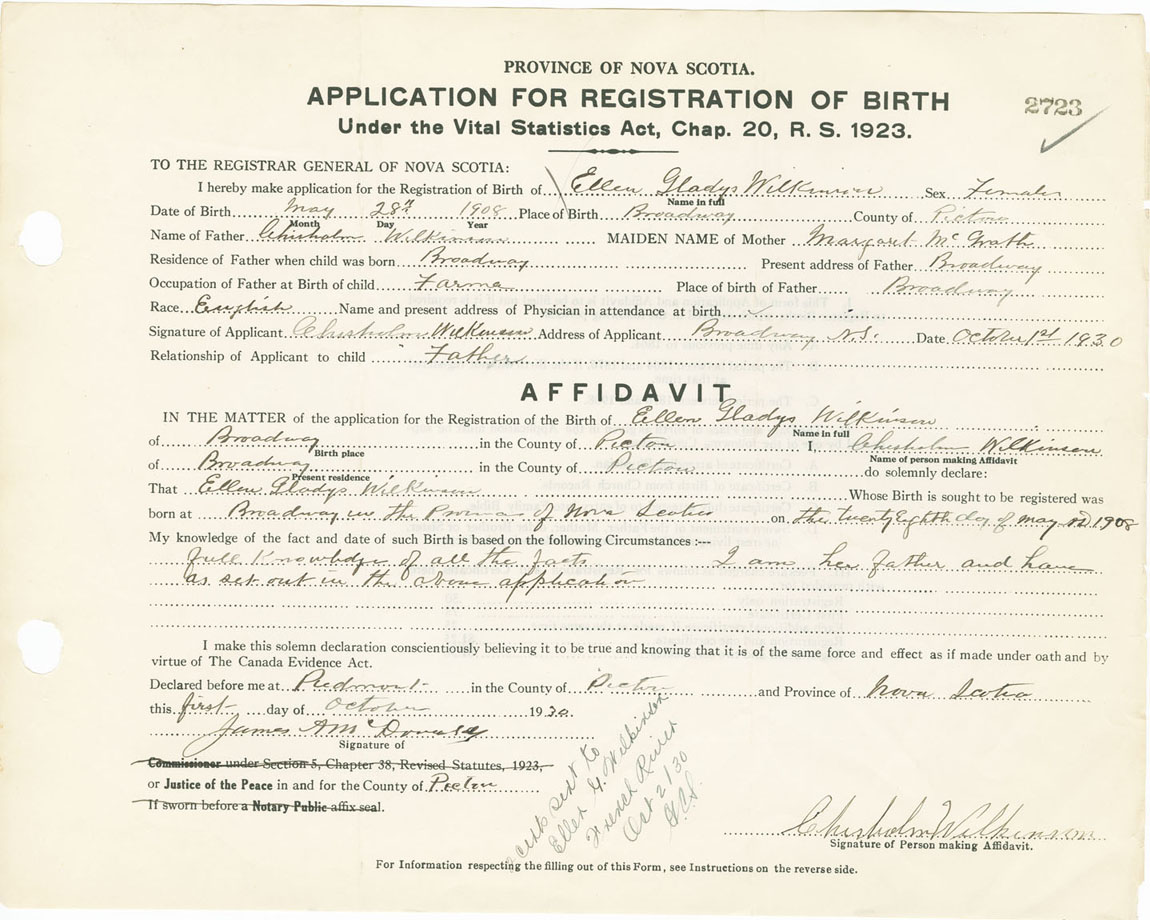 PROVINCE OF NOVA SCOTIA.
APPLICATION FOR REGISTRATION OF BIRTH
2723
Under the Vital Statistics Act, Chap. 20, R. S. 1923.
TO THE REGISTRAR GENERAL OF NOVA SCOTIA:
I hereby make application for the Registration of Birth of Ellen Gladys Wilkinson Sex Female
Name in full
Date of Birth May 28th 1908 Place of Birth Broadway County of Pictou
Month Day Year
Name of Father Chisholm Wilkinson MAIDEN NAME of Mother Margaret McGrath
Residence of Father when child was born Broadway Present address of Father Broadway
Occupation of Father at Birth of child Farmer Place of birth of Father Broadway
Race English Name and present address of Physician in attendance at birth
Signature of Applicant Chisholm Wilkinson Address of Applicant Broadway N.S. Date October 1st 1930
Relationship of Applicant to child Father
AFFIDAVIT
IN THE MATTER of the application for the Registration of the Birth of Ellen Gladys Wilkinson
Name in full
of Broadway in the County of Pictou I, Chisholm Wilkinson
Birth place Name of person making Affidavit
of Broadway in the County of Pictou do solemnly declare:
Present residence
That Ellen Gladys Wilkinson Whose Birth is sought to be registered was
born at Broadway in the Province of Nova Scotia on the twenty eighth day of May AD. 1908
My knowledge of the fact and date of such Birth is based on the following Circumstances :---
I am her father and have
full knowledge of all the facts
as set out in the above application
I make this solemn declaration conscientiously believing it to be true and knowing that it is of the same force and effect as if made under oath and by
virtue of The Canada Evidence Act.
Declared before me at Piedmont in the County of Pictou and Province of Nova Scotia
this first day of October 1930.
James A McDonald
Signature of
Commissioner under Section 5, Chapter 38, Revised Statutes, 1923,
or Justice of the Peace in and for the County of Pictou
If sworn before a Notary Public affix seal.
cert sent to
Ellen G. Wilkinson
French River
Oct 2/30
Chisholm Wilkinson
Signature of Person making Affidavit.
For Information respecting the filling out of this Form, see Instructions on the reverse side.